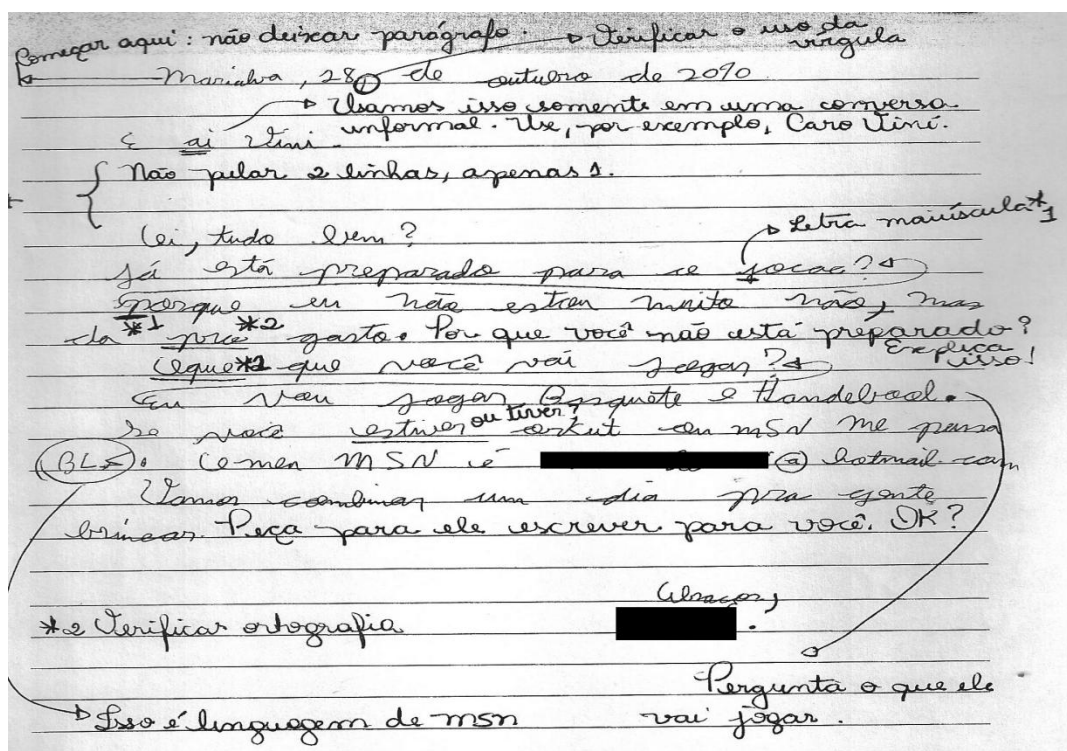 Começar aqui: não deixar parágrafo. Verificar o uso da vírgula
Marialva, 28, de outubro de 2010
Usamos isso somente em uma conversa informal. Use, por exemplo, Caro Vini.
E ai Vini.
Não pular 2 linhas, apenas 1.
Oi, tudo bem?
Letra maiúscula *1
Já está preparado para
porque eu não estou muito não, mas
da *1 *2 gasto. Por que você não está preparado? Explica isso!
que você vai jogar?
Eu vou jogar Basquete e Handebool.
Se você estiver ou tiver? orkut ou MSN me passa
BLZ. O meu MSN é @ hotmail.com
Vamos combinar um dia pra gente
brincar. Peça para ele escrever para você. OK?
Abraços,
*2 Verificar ortografia
Pergunta o que ele vai jogar.
Isso é linguagem de msn